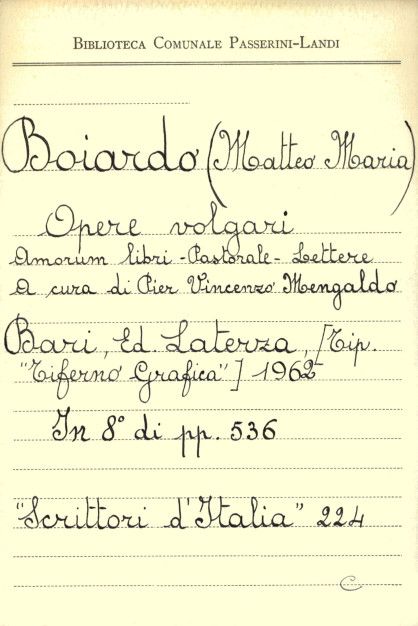 BIBLIOTECA COMUNALE PASSERINI-LANDI
Boiardo (Matteo Maria)
Opere volgari
Amorum libri - Pastorale - Lettere
A cura di Pier Vincenzo Mengaldo
Bari, Ed. Laterza, [Tip.
"Tiferno Grafica"] 1962
In 8° di pp. 536
"Scrittori d'Italia" 224
C